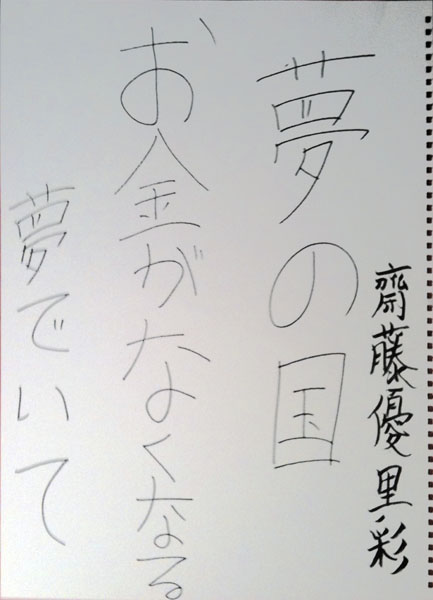 夢の国
お金がなくなる
夢でいて
齋藤優里彩